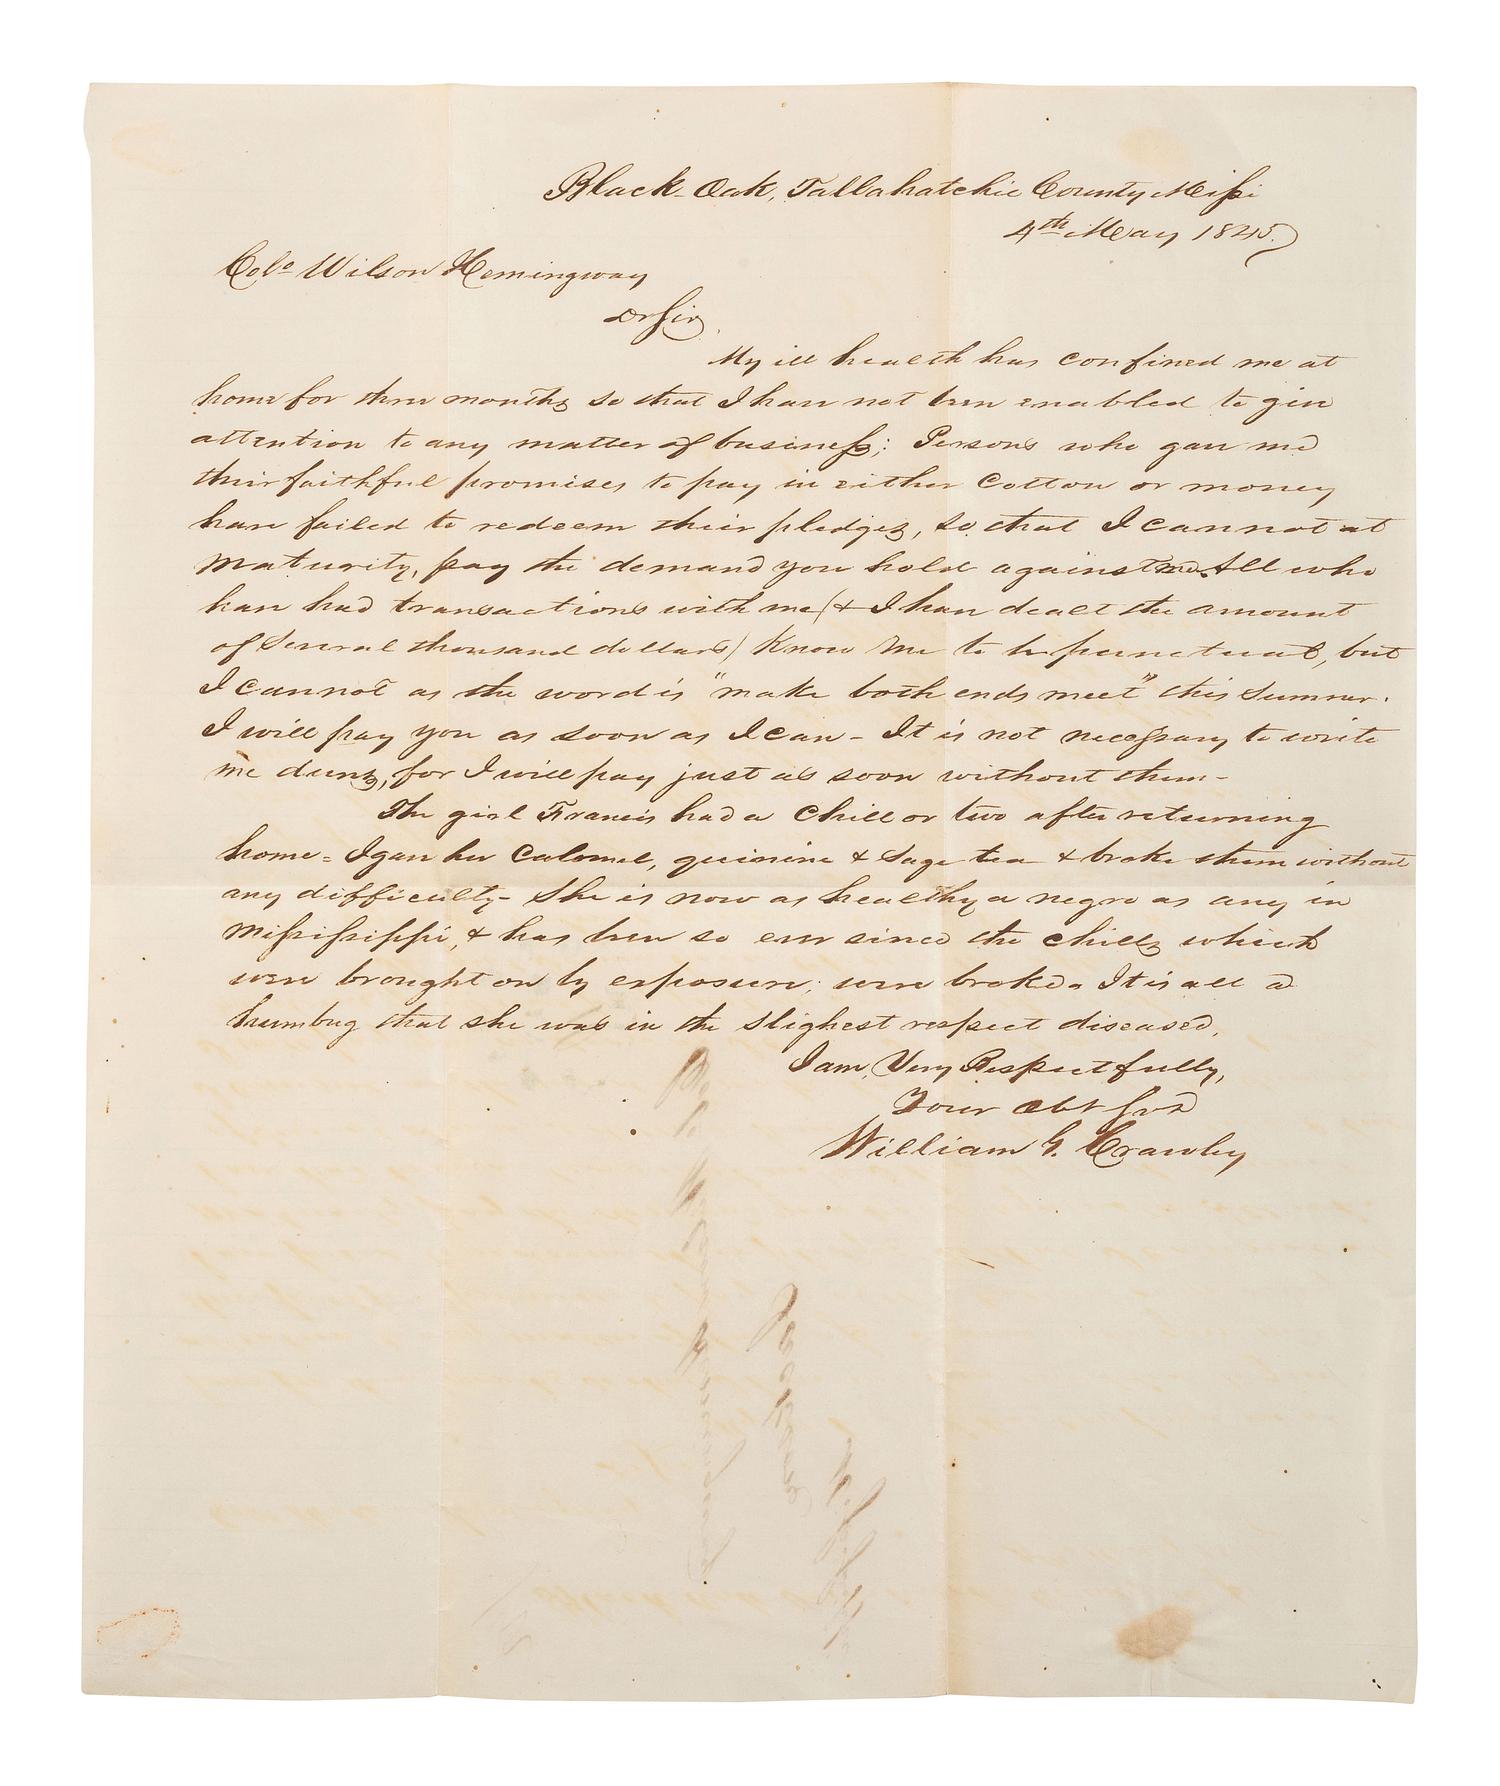 Black-Oak, Tallahatchie County Missi
4th May 1845.
Colo Wilson Hemingway
Dr Sir,
My ill health has confined me at
home for three months so that I have not been enabled to give
attention to any matter of business; Persons who gave me
their faithful promises to pay in either cotton or money
have failed to redeem their pledges, so that I cannot at
maturity, pay the demand you hold against me. All who
have had transactions with me (& I have dealt the amount
of several thousand dollars) know me to be punctual, but
I cannot as the word is "make both ends meet" this summer.
I will pay you as soon as I can - It is not necessary to write
me duns, for I will pay just as soon without them -
The girl Francis had a chill or two after returning
home = I gave her calomel, quinine & sage tea & broke them without
any difficulty - She is now as healthy a negro as any in
Mississippi, & has been so ever since the chills which
were brought on by exposure; were broke. It is all a
humbug that she was in the slighest respect diseased.
I am, Very Respectfully,
Your obt svt
William G. Crawley